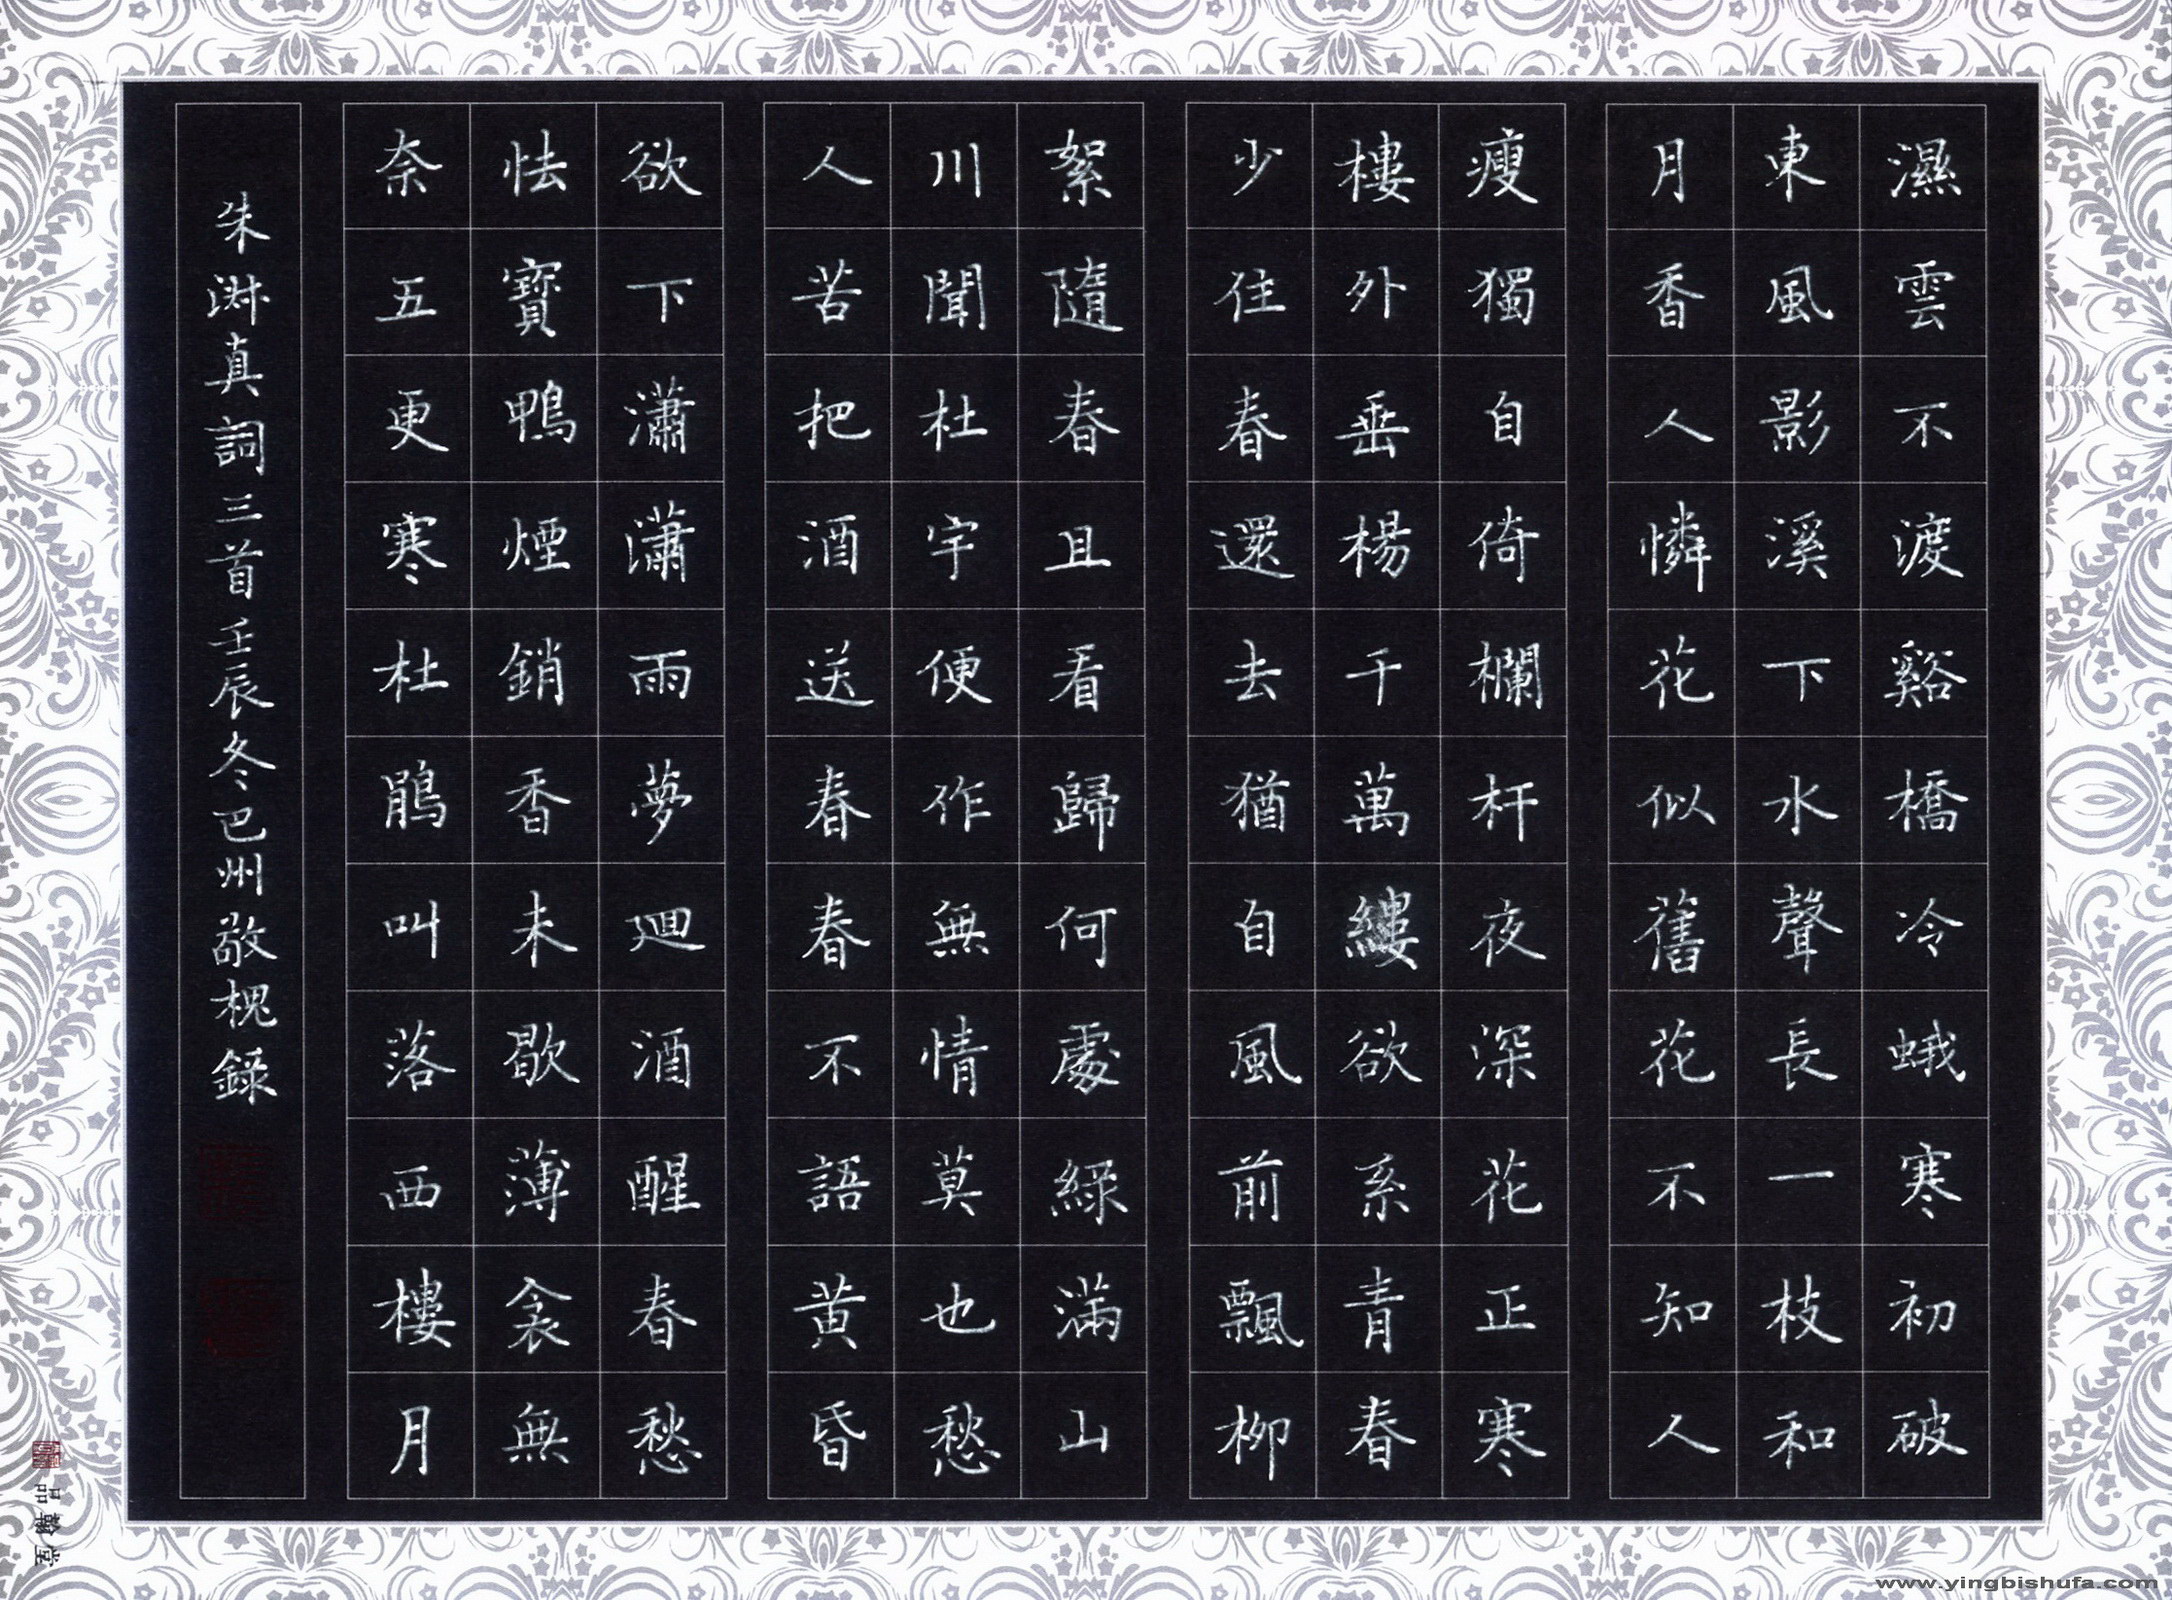 濕雲不渡谿橋冷蛾寒初破
東風影溪下水聲長一枝和
月香人憐花似舊花不知人
瘦獨自倚欄杆夜深花正寒
樓外垂楊千萬縷欲系青春
少住春還去猶自風前飄柳
絮隨春且看歸何處綠滿山
川聞杜宇便作無情莫也愁
人苦把酒送春春不語黃昏
欲下瀟瀟雨夢迴酒醒春愁
怯寶鴨煙銷香未歇薄衾無
奈五更寒杜鵑叫落西樓月
朱淑真詞三首壬辰冬巴州敬槐錄
品翰堂
www.yingbishufa.com